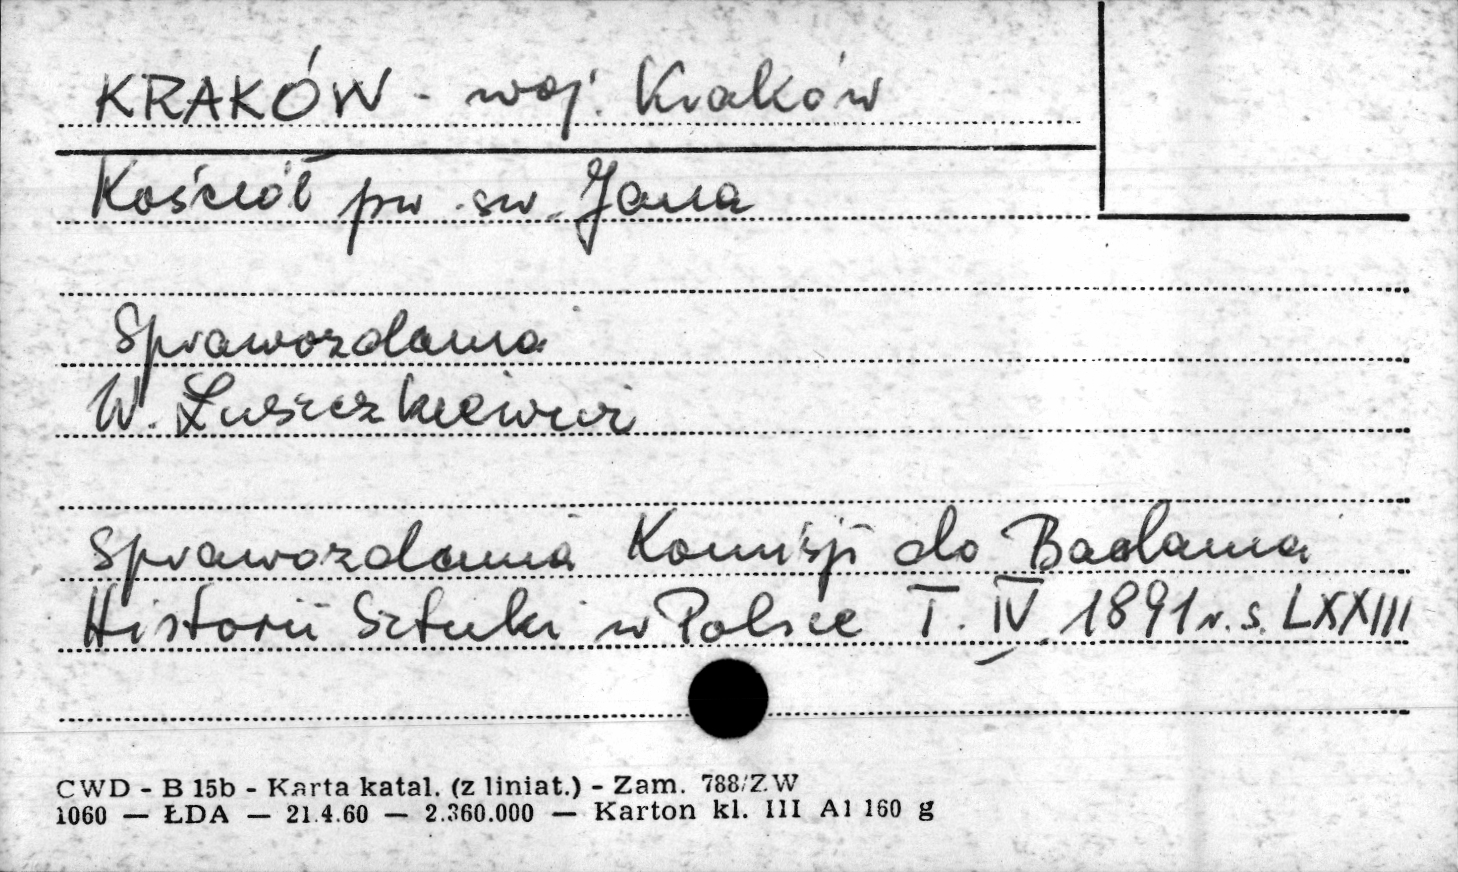 KRAKÓW - woj. Kraków
Kościół pw. św. Jana
Sprawozdania
W. Łuszczkiewicz
Sprawozdania Komisji do Badania
Historii Sztuki w Polsce T. IV. 1891 r. s. LXXIII
CWD - B 15b - Karta katal. (z liniat.) - Zam. 788/ZW
1060 — ŁDA — 21.4.60 — 2.360.000 — Karton kl. III A1 160 g